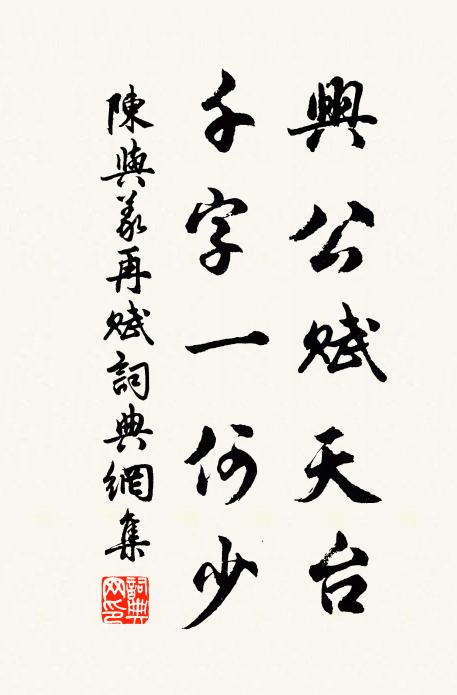 興公賦天台
千字一何少
陳與義再賦詞典網集
詞典網印